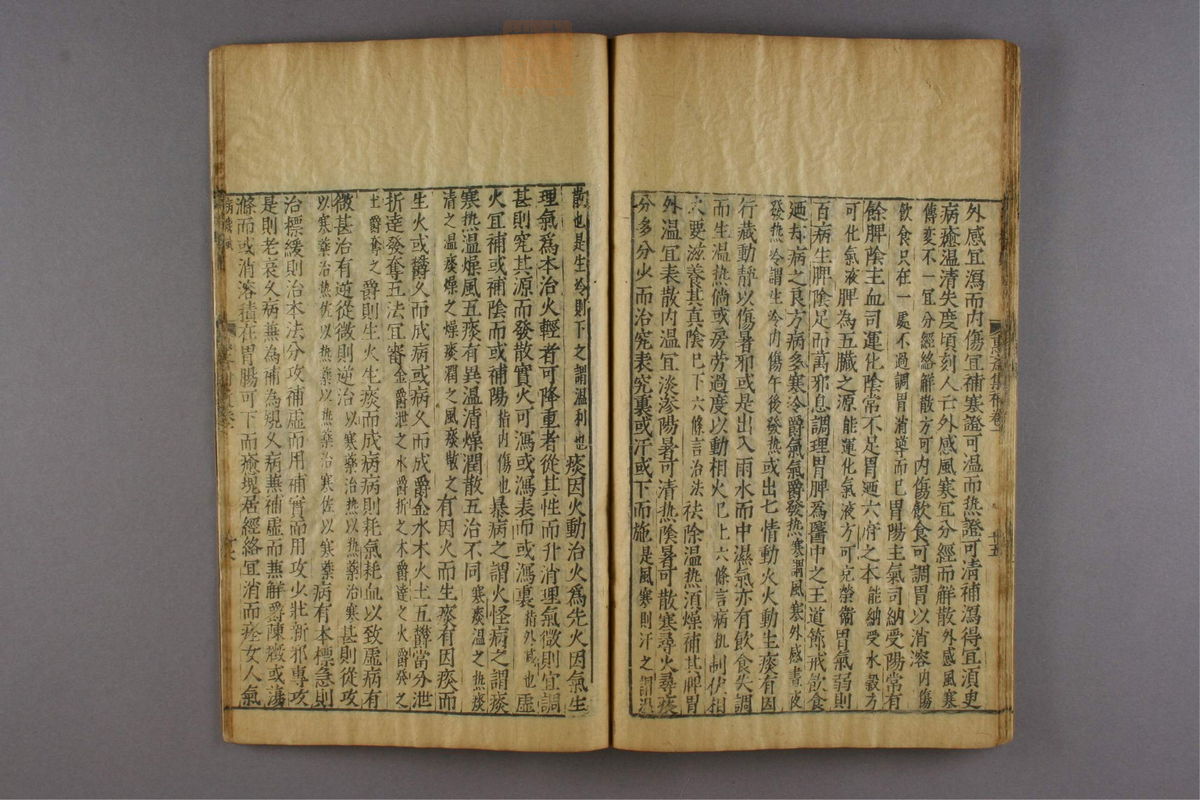 外感宜瀉而內傷宜補寒證可温而熱證可清補瀉得宜須臾
病癒温清失度頃刻人亡外感風寒宜分經而觧散外感風寒
傳變不一宜分經絡觧散方可内傷飲食可調胃以消溶内傷
飲食只在一處不過調胃消導而已胃陽主氣司納受陽常有
餘脾陰主血司運化陰常不足胃廼六府之本能納受水穀方
可化氣液脾為五臟之源能運化氣液方可充榮衛胃氣弱則
百病生脾陰足而萬邪息調理胃脾為醫中之王道節戒飲食
廼却病之良方病多寒冷爵氣氣爵發热寒謂風寒外感晝夜
發热冷謂生冷内傷午後發热或出七情動火火動生痰有因
行藏動静以傷暑邪或是出入雨水而中濕氣亦有飲食失調
而生温热倘或房劳過度以動相火已上六條言病机制伏相
火要滋養其真陰已下六條言治法祛除温热湏燥補其脾胃
外温宜表散内温宜淡渗陽暑可清热陰暑可散寒尋火尋痰
分多分少而治究表究裏或汗或下而施是風寒則汗之謂温
散也是生冷則下之謂温利也痰因火動治火為先火因氣生
理氣為本治火輕者可降重者從其性而升消理氣微則宜調
甚則究其源而發散實火可瀉或瀉表而或瀉裏指外感也虛
火宜補或補陰而或補陽指内傷也暴病之謂火怪病之謂痰
寒热温燥風五痰有異温清燥潤散五治不同寒痰温之热痰
清之温痰燥之燥痰潤之風痰散之有因火而生痰有因痰而
生火或爵久而成病或病久而成爵金水木火土五爵當分泄
折達發奪五法宜審金爵泄之水爵折之木爵達之火爵發之
土爵奪之爵則生火生痰而成病病則耗氣耗血以致虛病有
微甚治有逆從微則逆治以寒藥治热以热藥治寒甚則從攻
以寒藥治热佐以热藥以热藥治寒佐以寒藥病有本標急則
治標緩則治本法分攻補虛而用補實而用攻少壯新邪專攻
是則老衰久病無為補為規久病無補虛而無觧爵陳癥或蕩
滌而或消溶積在胃腸可下而癒塊居經絡宜消而痊女人氣